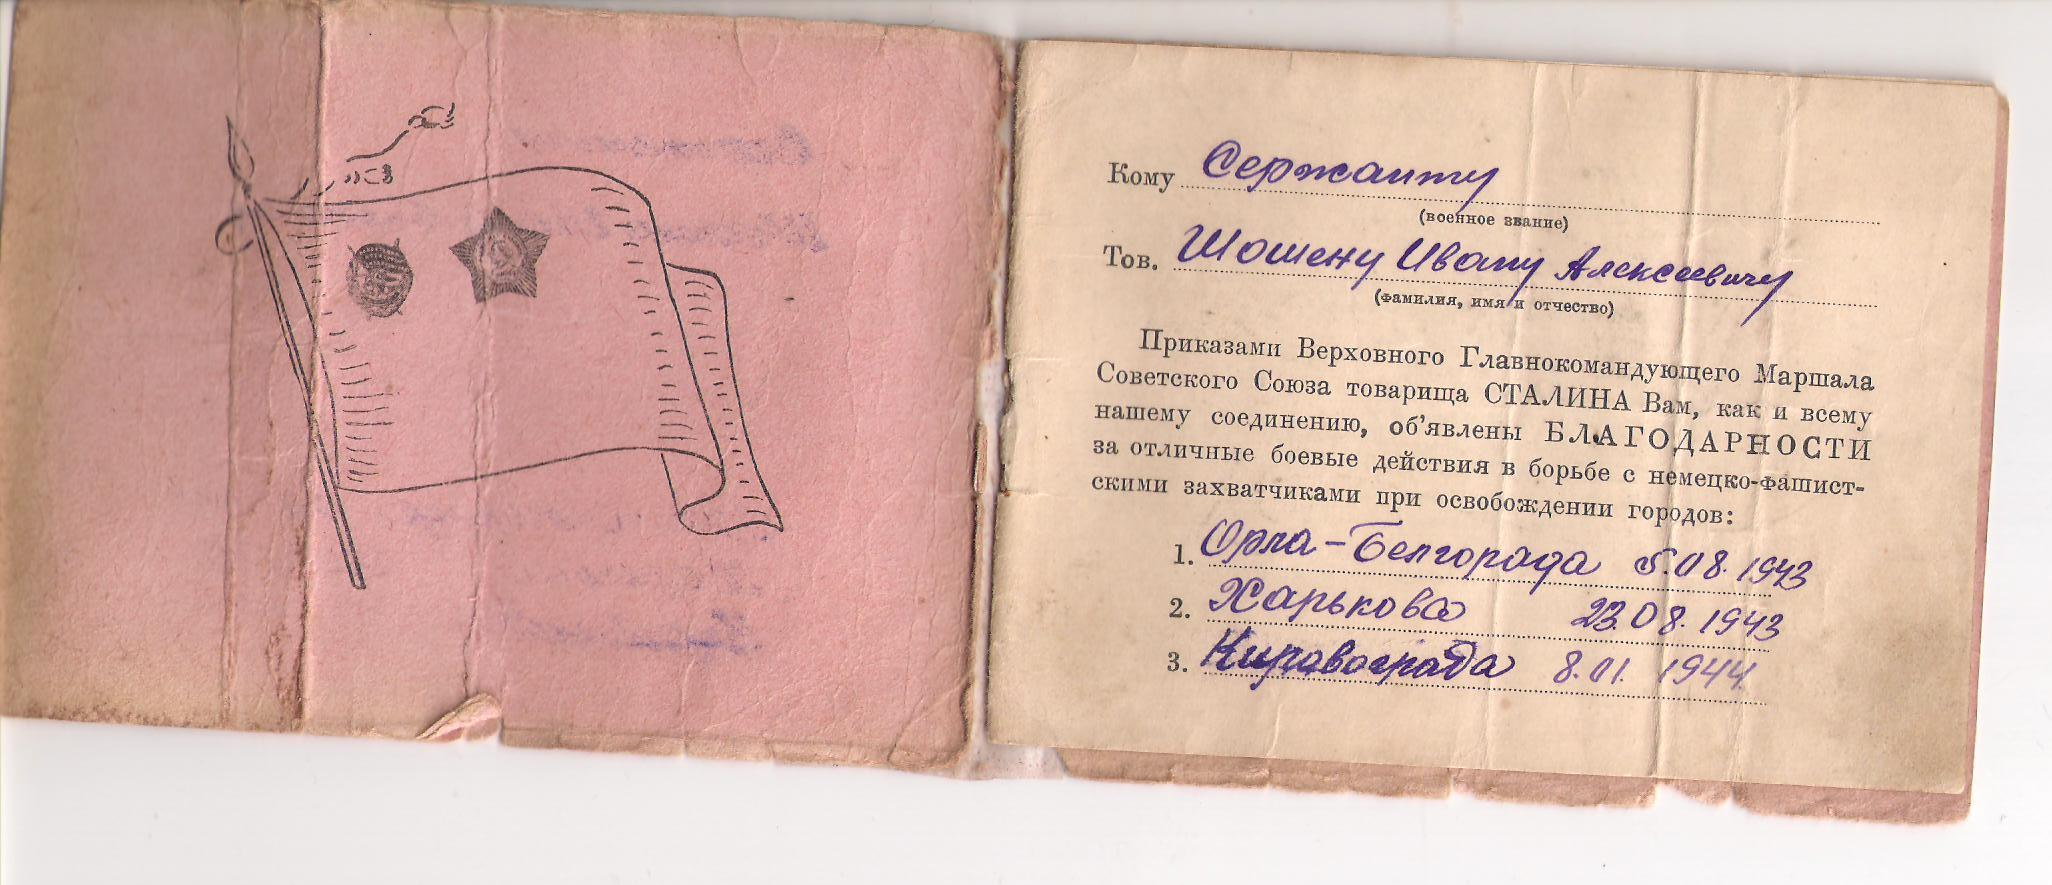 Кому Сержанту
(военное звание)
Тов. Шошену Ивану Алексеевичу
(фамилия, имя и отчество)
Приказами Верховного Главнокомандующего Маршала
Советского Союза товарища СТАЛИНА Вам, как и всему
нашему соединению, об'явлены БЛАГОДАРНОСТИ
за отличные боевые действия в борьбе с немецко-фашист-
скими захватчиками при освобождении городов:
1. Орла-Белгорода 5.08.1943
2. Харькова 23.08.1943
3. Кировограда 8.01.1944